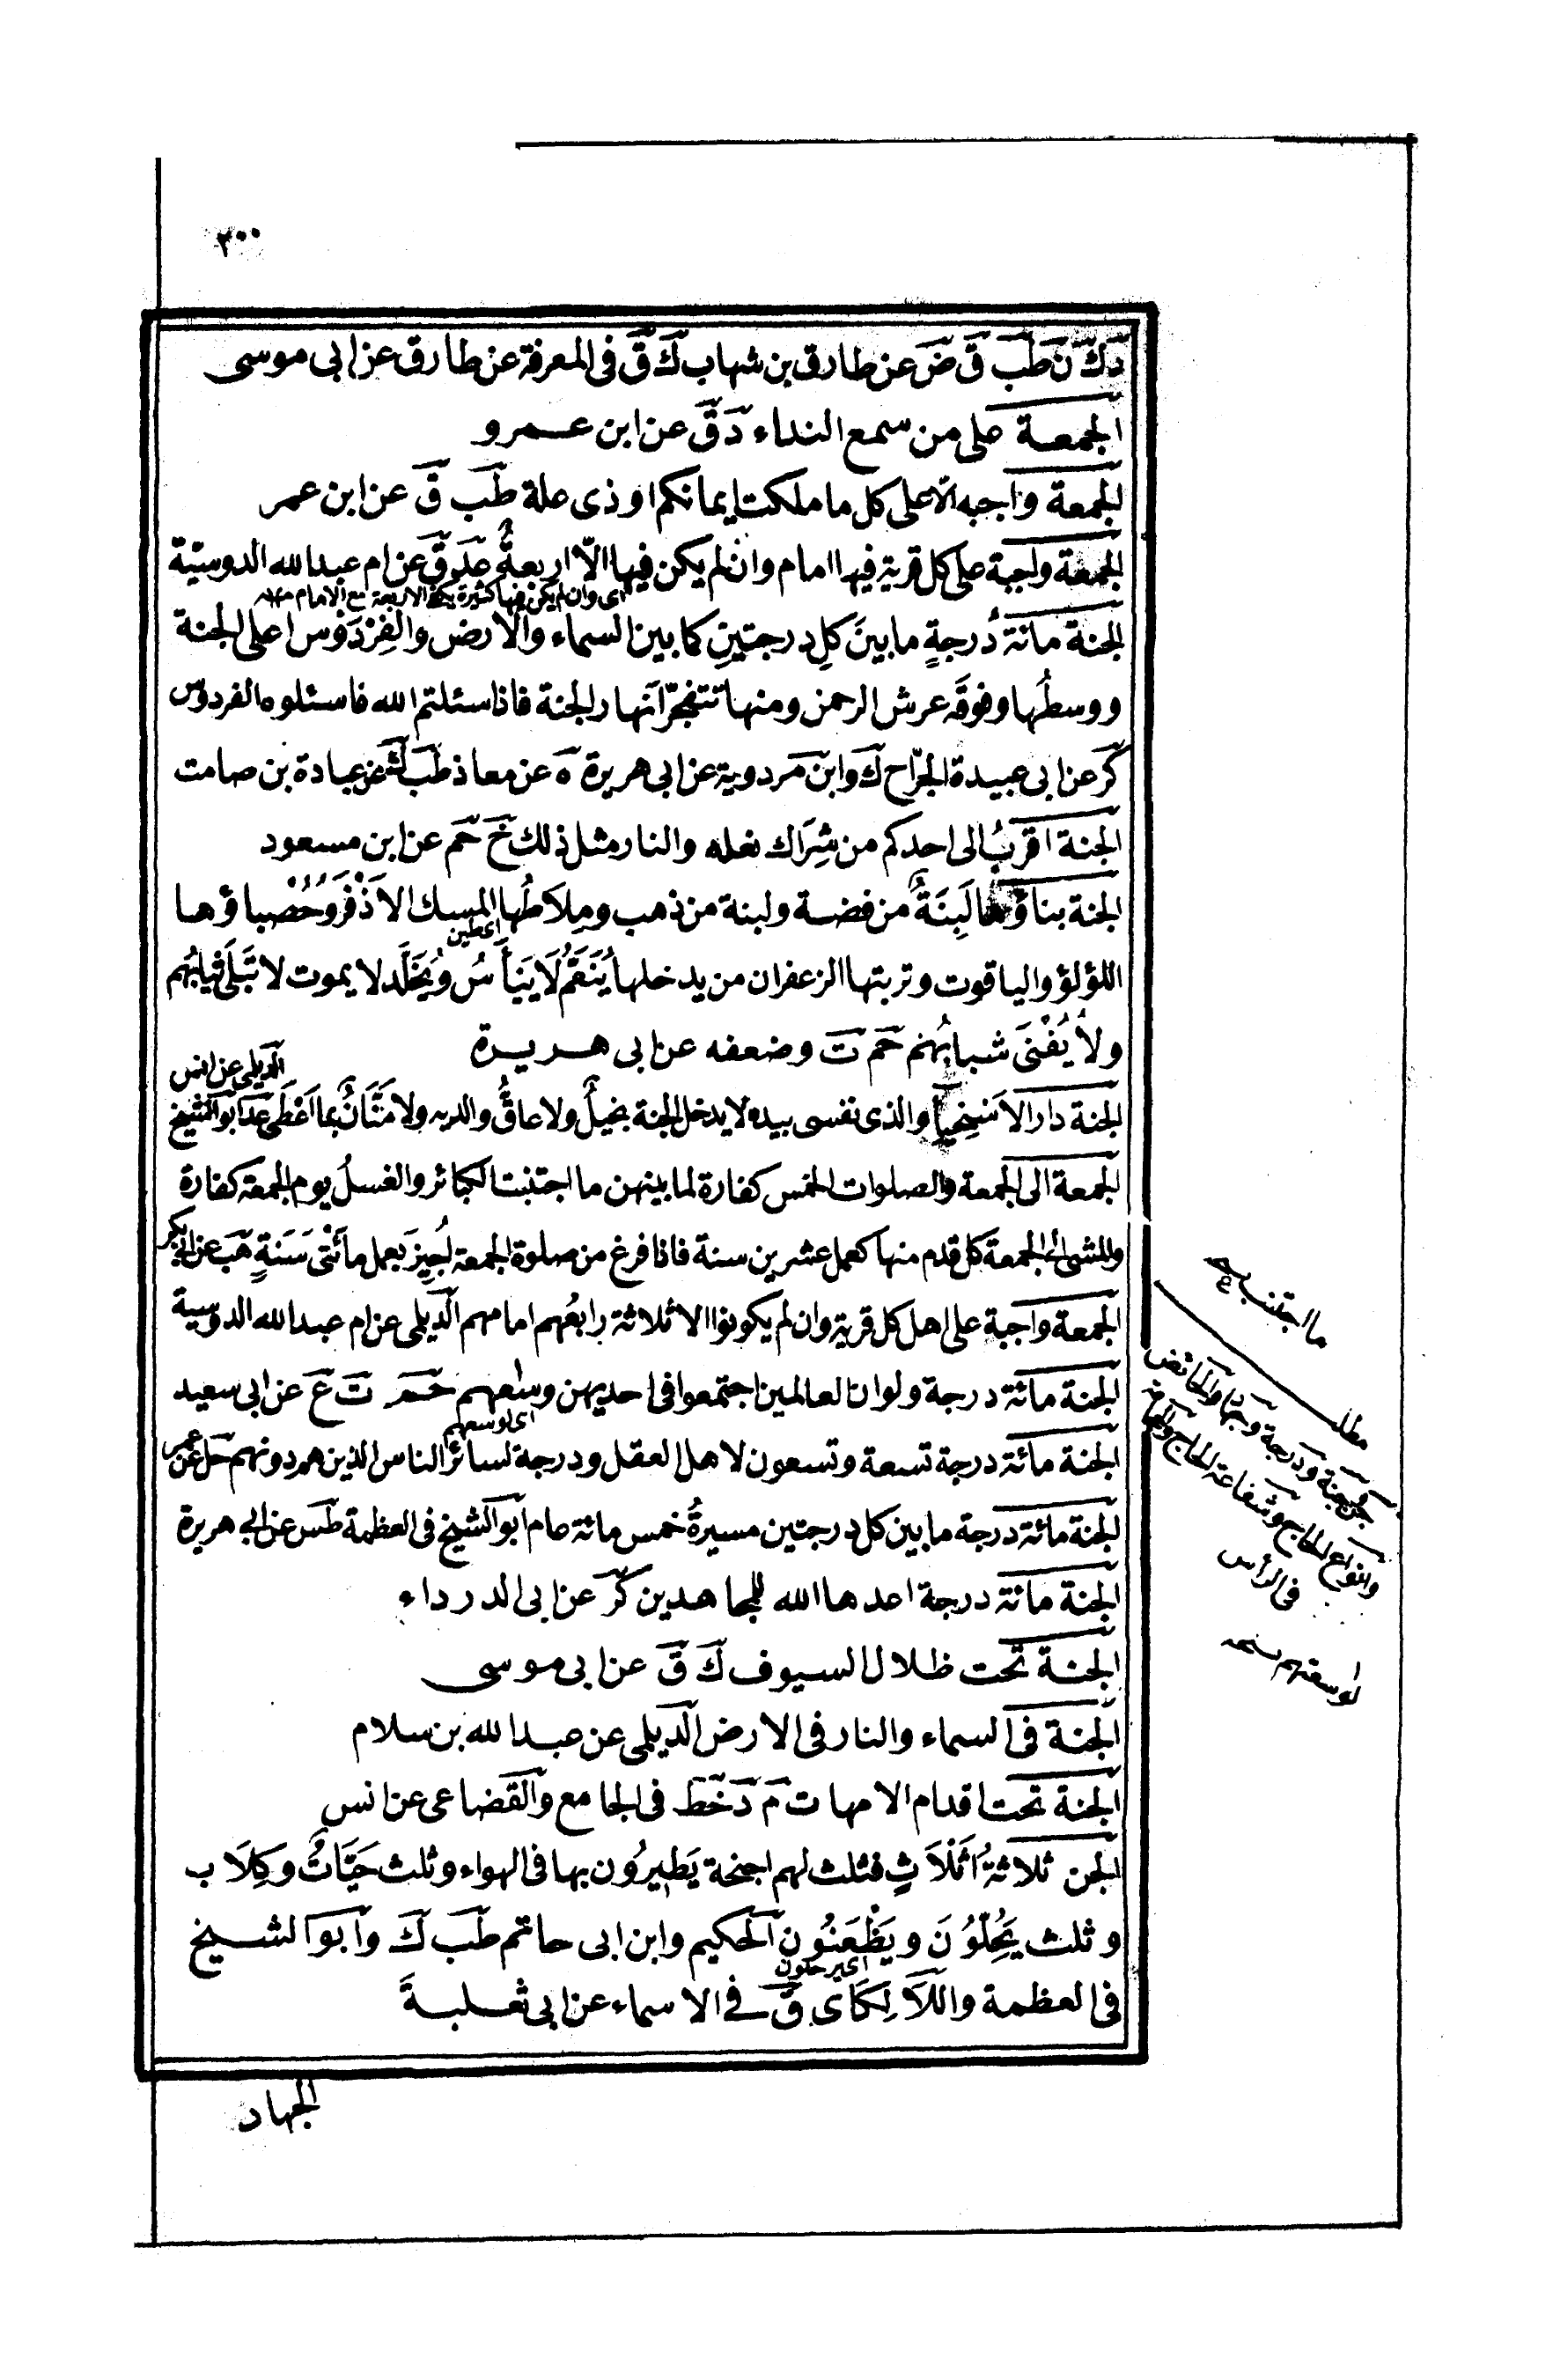 ٣٠٠
د ك ن طب ق ض عن طارق بن شهاب ك ق فى المعرفة عن طارق عن ابى موسى
الجمعة على من سمع النداء د ق عن ابن عمرو
الجمعة واجبه الا على كل ما ملكت ايمانكم او ذى علة طب ق عن ابن عمر
الجمعة واجبة على كل قرية فيها امام وان لم يكن فيها الّا اربعةٌ عد ق عن ام عبد الله الدوسيّة
اى وان لم يكن فيها كثيرة يكفى الاربعة مع الامام منه
الجنة مائة دُرجةٍ ما بينَ كلِ درجتينِ كما بين السماء والارض والفِرْدَوْس اعلى الجنة
ووسطُها وفوقَه عرش الرحمن ومنها تتفجّر انهار الجنة فاذا سئلتم الله فاسئلوه الفردوس
كر عن ابى عبيدة الجرّاح ك وابن مردوية عن ابى هريرة ه عن معاذ طب ك عن عبادة بن صامت
الجنة اقربُ الى احدكم من شِرَاك نعله والنار مثل ذلك خ حم عن ابن مسعود
الجنة بناؤها لَبِنَةٌ من فضة ولبنة من ذهب ومِلاَطُها المسك الاَذْفَر وَحُصْباؤها
اى طين
اللؤلؤ والياقوت وتربتها الزعفران من يدخلها يُنَعَّمُ لَا يَيْأَسُ ويُخَلَّد لا يموت لا تَبَلَى ثيابُهم
ولا يُفْنَى شبابُهُم حم ت وضعفه عن ابى هريرة
الديلمى عن انس
الجنة دار الاَسْخِيَا والذى نفسى بيده لا يدخل الجنة بخيلٌ ولا عاقٌّ والديه ولا مَنَّانٌ بما اَعْطَى عد ابو الشيخ
الجمعة الى الجمعة والصلوات الخمس كفارة لما بينهن ما اجتنبت الكبائر والغسلُ يوم الجمعة كفارة
والمشى الى الجمعة كل قدم منها كعمل عشرين سنة فاذا فرغ من صلوة الجمعة اُجِيزَ بعمل مأئَتَى سَنَةٍ هب عن ابى بكر
الجمعة واجبة على اهل كل قرية وان لم يكونوا الا ثلاثة رابعُهم امامهم الديلمى عن ام عبد الله الدوسية
الجنة مائة درجة ولو ان العالمين اجتمعوا فى احديهن وسعهم حم ت ع عن ابى سعيد
اى لوسعهم
الجنة مائة درجة تسعة وتسعون لاهل العقل ودرجة لسائر الناس الذين هم دونهم حل عن عمر
الجنة مائة درجة ما بين كل درجتين مسيرةُ خمس مائة عام ابو الشيخ فى العظمة طس عن ابى هريرة
الجنة مائة درجة اعدها الله للمجاهدين كر عن ابى الدرداء
الجنة تحت ظلال السيوف ك ق عن ابى موسى
الجنة فى السماء والنار فى الارض الديلمى عن عبد الله بن سلام
الجنة تحت اقدام الامهات م د خط فى الجامع والقضاعى عن انس
الجن ثلاثةُ اَثْلَاثٍ فثلث لهم اجنحة يَطِيرُون بها فى الهواء وثلث حَيَّاتٌ وكِلَاب
وثلث يَحِلُّوُنَ ويَظْعَنُونَ الحكيم وابن ابى حاتم طب ك وابو الشيخ
اى يرحلون
فى العظمة واللاَلِكَاى ق فى الاسماء عن ابى ثعلبةَ
الجهاد
ما اجتنب
مطلب
وانواع الحاج وشفاعة الحاج
فى الرأس
لوسعتهم نسخه